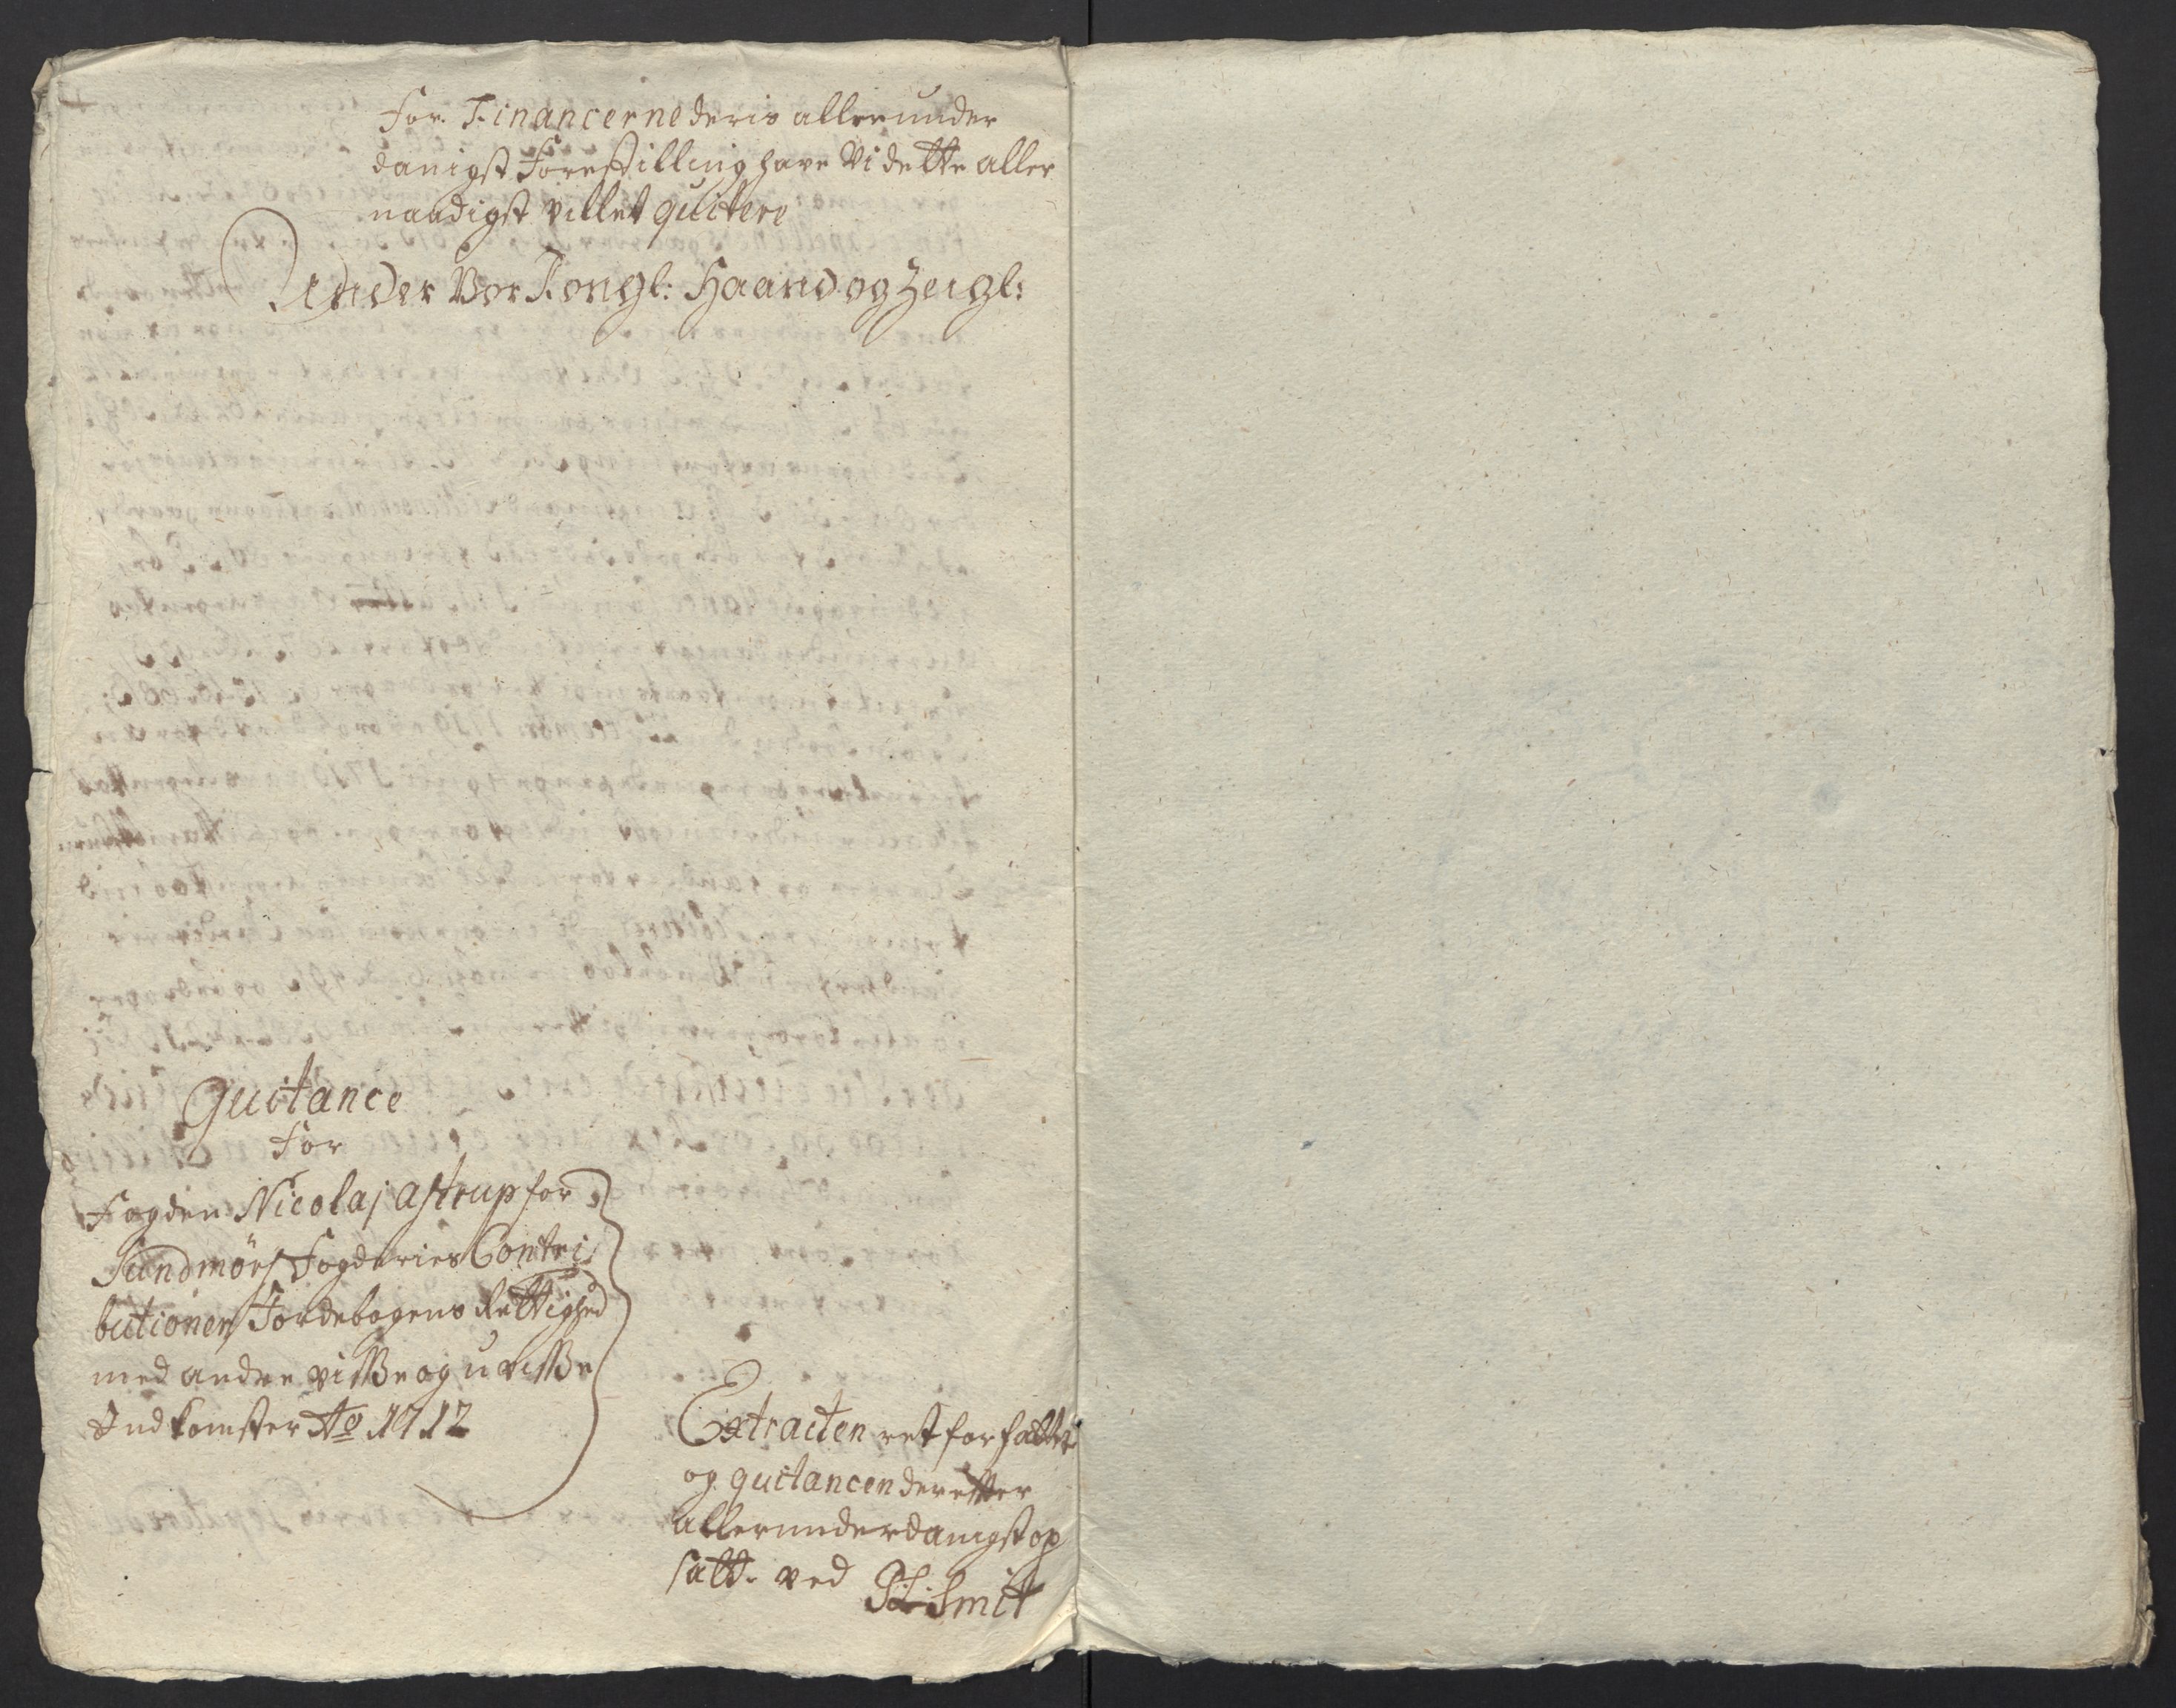 for Financerne deris allerunder
danigst Forestilling have Vi dette aller
naadigst villet quitere
Under Vor Kongl: Haand og Zeigl:
Quitance
for
Fogden Nicolaj Astrup for
Sundmörs Fogderies Contri,
butioner Jordebogens Rettighed
med andre visse og uvisse
Indkomster Ao 1712
Extracten ret forfattet
og quitancen derefter
allerunderdanigst op
satt. ved
Smitt